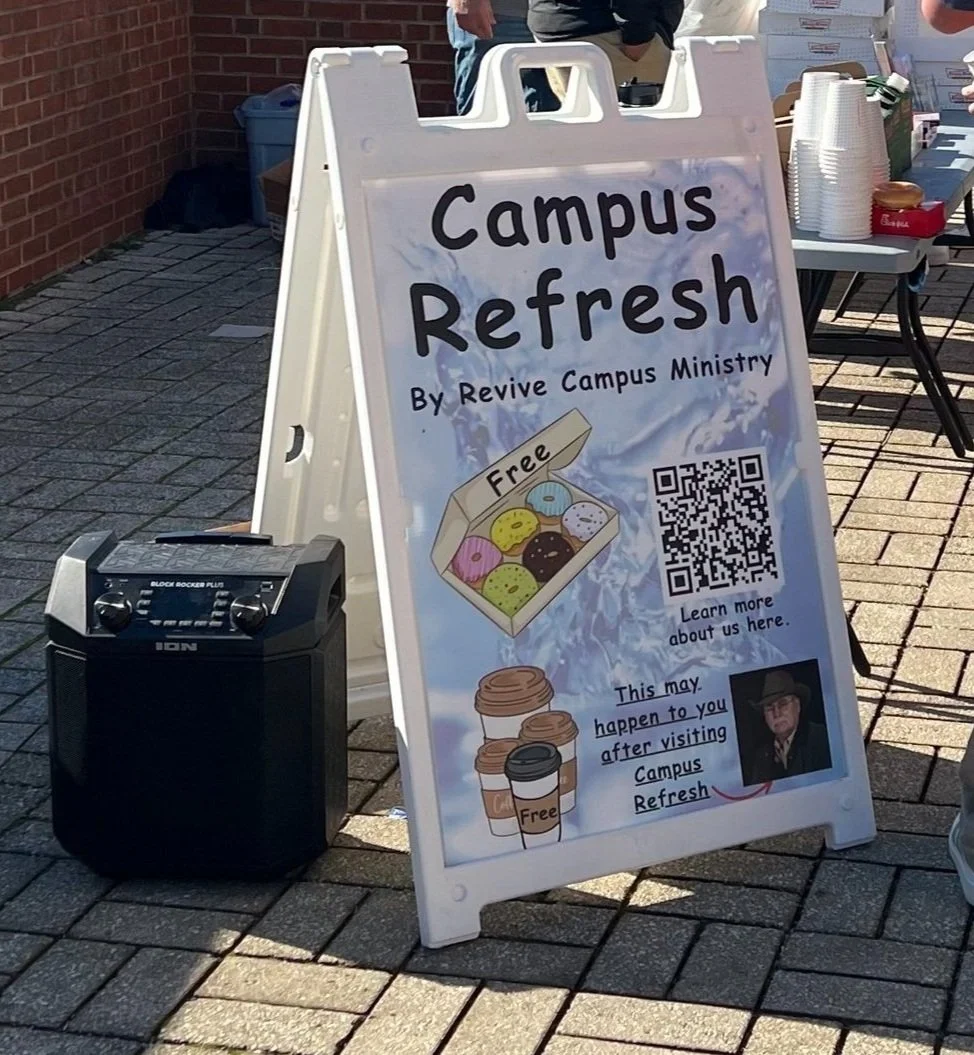 Campus
Refresh
By Revive Campus Ministry
Free
Learn more
about us here.
This may
happen to you
after visiting
Campus
Refresh
Free
BLOCK ROCKER PLUS
ION